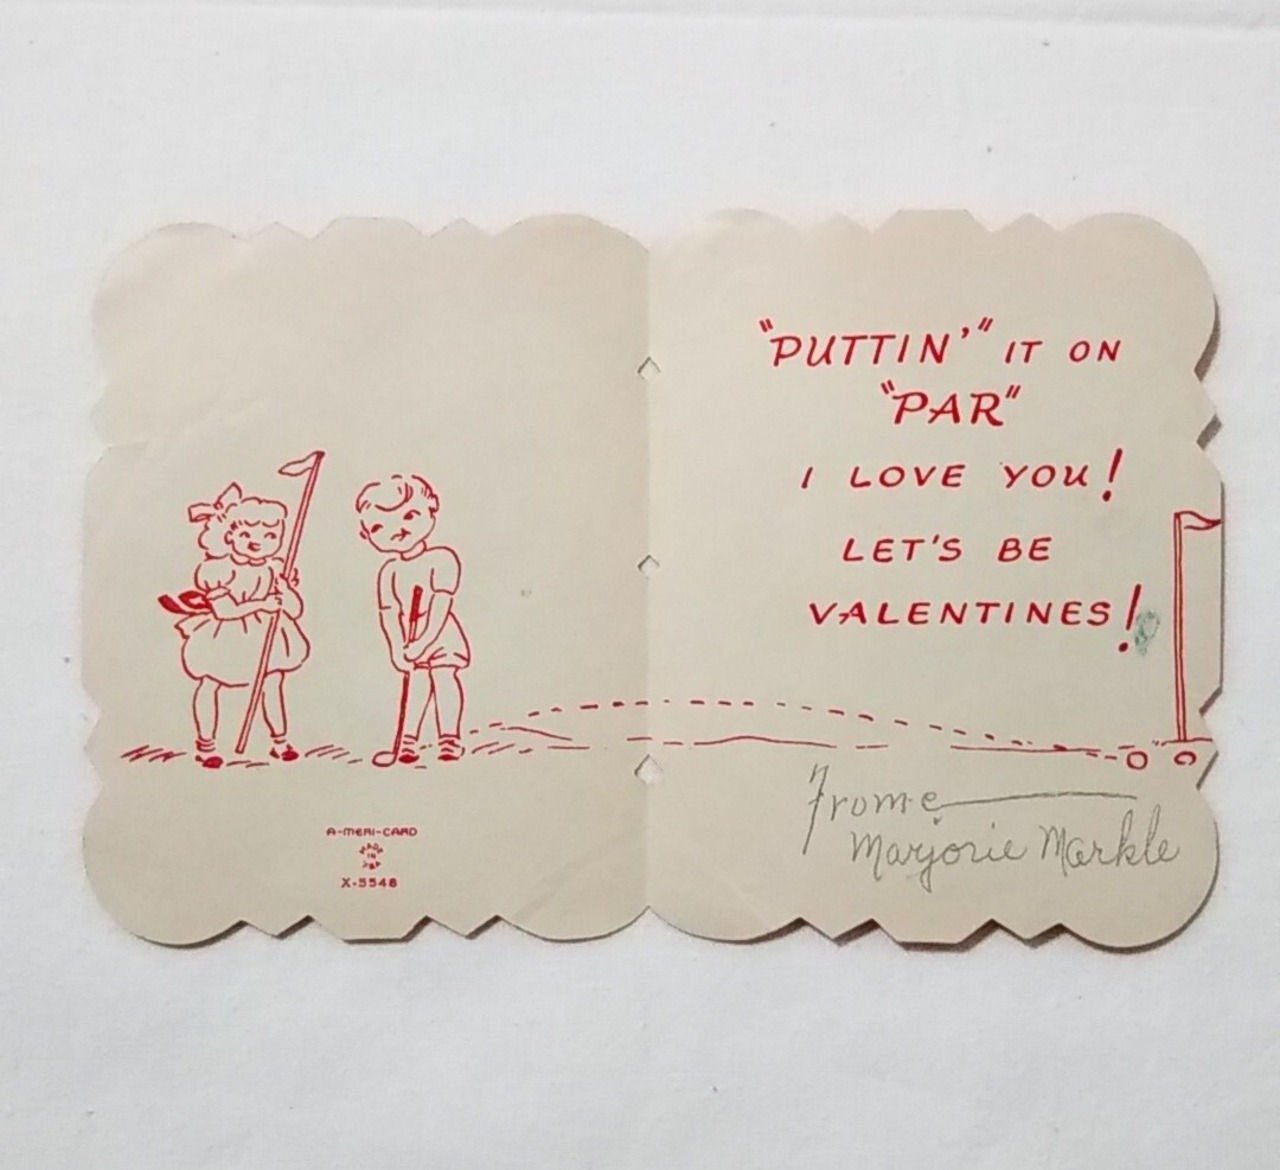 "PUTTIN'" IT ON
"PAR"
I LOVE YOU!
LET'S BE
VALENTINES!
Frome
Marjorie Markle
A-MERI-CARD
MADE
IN
USA
X-5548